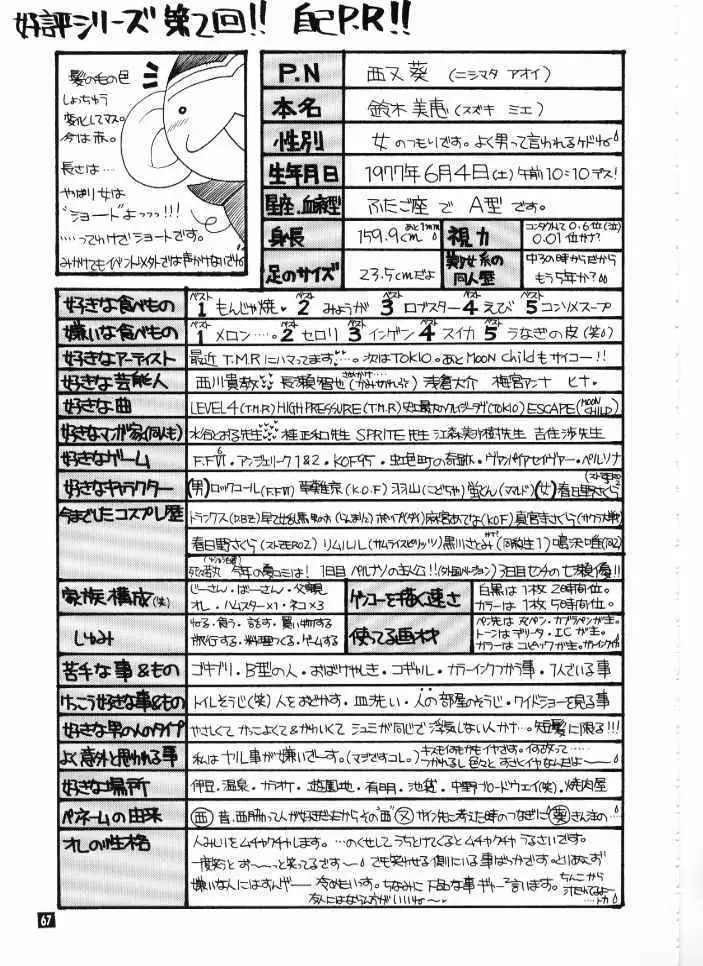 好評シリーズ第2回!! 自己P.R!!
髪の毛の色
しょっちゅう
変化してマス。
今は赤。
長さは…
やはり女は
"ショート"よっっっ!!!
……ってわけでショートです。
みかけてもイベントメ外では声かけないでね
P.N 西又 葵 (ニシマタ アオイ)
本名 鈴木 美恵 (スズキ ミエ)
性別 女 のつもりです。よく男って言われるケドねー
生年月日 1977年6月4日(土) 午前10:10デス!
星座、血液型 ふたご座 で A型 です。
身長 159.9cm あと1mm 視力 コンタクトして0.6位(泣) 0.01位かナ?
足のサイズ 23.5cmだよ 美少女系の同人歴 中3の時からだから もう5年か?
好きな食べもの ベスト1 もんじゃ焼 ベスト2 みょうが ベスト3 ロブスター ベスト4 えび ベスト5 コンソメスープ
嫌いな食べもの ベスト1 メロン…。ベスト2 セロリ ベスト3 インゲン ベスト4 スイカ ベスト5 うなぎの皮(笑)
好きなアーティスト 最近 T.M.RにハマってますU…。次はTOKIO。あとMOON childもサイコー!!
好きな芸能人 西川貴教 長瀬智也 浅倉大介 梅宮アンナ ヒナ。
好きな曲 LEVEL4(T.M.R) HIGH PRESSURE(T.M.R) 史上最大のクルージング(TOKIO) ESCAPE(MOON CHILD)
好きなマンガ家(同人も) 水谷とおる先生 桂正和先生 SPRITE先生 江森美沙樹先生 吉住渉先生
好きなゲーム F.F.VI・アンジェリーク1&2・KOF95・虹色町の奇跡・ヴァンパイアセイヴァー・ペルソナ
好きなキャラクター (男)ロックコール(F.F.VI) 草薙京(K.O.F) 羽山(こどちゃ) 蛍どん(ママレド) (女)春日野さくら(ストZERO2)
今までしたコスプレ歴 トランクス(D.B.Z) 早乙女乱馬 男のカ(らんま½) ポップ(ダイ) 麻宮あてな(KOF) 真宮寺さくら(サクラ大戦)
春日野さくら(ストZERO2) リムルル(サムライスピリッツ) 黒川さとみ(同級生1) 鳴沢唯(同2)
今年の夏コミは! 1日目ペルソナの主人公!!(外国バージョン) 3日目センチの七瀬優!!
家族構成(笑) じーさん・ばーさん・父親母 オレ・ハムスター×1・ネコ×3 ゲンコーを描く速さ 白黒は1枚2時間位。 カラーは1枚5時間位。
しゅみ ねる・食う・話す・買い物する 旅行する・料理つくる・ゲームする 使ってる画材 ペン先は丸ペン・カブラペンが主。 トーンはデリータ・ICが主。 カラーはコピックが主。カラーインクも
苦手な事&もの ゴキブリ・B型の人・おばけやしき・コギャル・カラーインクつかう事・1人でいる事
けっこう好きな事&もの トイレそうじ(笑) 人をおどかす・皿洗い・人の部屋のそうじ・ワイドショーを見る事
好きな男の人のタイプ やさしくて かっこよくて&かわいくて シュミが同じで 浮気しない人かナ…。短髪に限る!!!
よく意外と思われる事 私は ヤル事が嫌いでーす。(マジですコレ。) キスもおさわりもイヤです。何故って…… つかれるし 色々と すごくイヤなんだよ〜
好きな場所 伊豆・温泉・カラオケ・遊園地・有明・池袋・中野ブロードウェイ(笑)・焼肉屋
ペンネームの由来 (西) 昔、西脇って人が好きだったから その"西" (又) サイン先に考えた時のつなぎに (葵)
オレの性格 人みしりをムチャクチャします。…のくせして うちとけてくると ムチャクチャ うるさいです。
一度笑うと お〜〜っと笑ってるです〜 でも笑わせる側にいる事ばっかです。とりあえず
嫌いな人には すんげー 冷めたいです。ちなみに 下品な事 ギャー²言います。
友人にはならん方がいいね〜
67